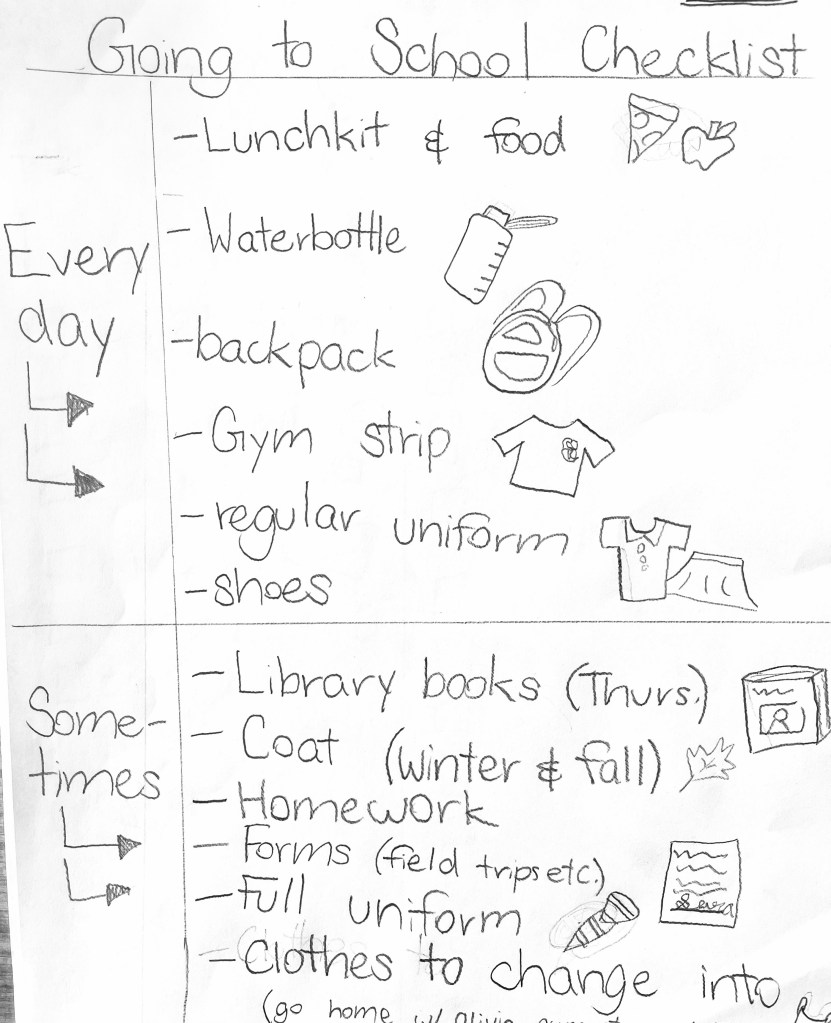 Going to School Checklist
Every day
- Lunchkit & food
- Waterbottle
- backpack
- Gym strip
- regular uniform
- shoes
Some-
times
- Library books (Thurs.)
- Coat (winter & fall)
- Homework
- Forms (field trips etc.)
- full uniform
- Clothes to change into
(go home w/ olivia